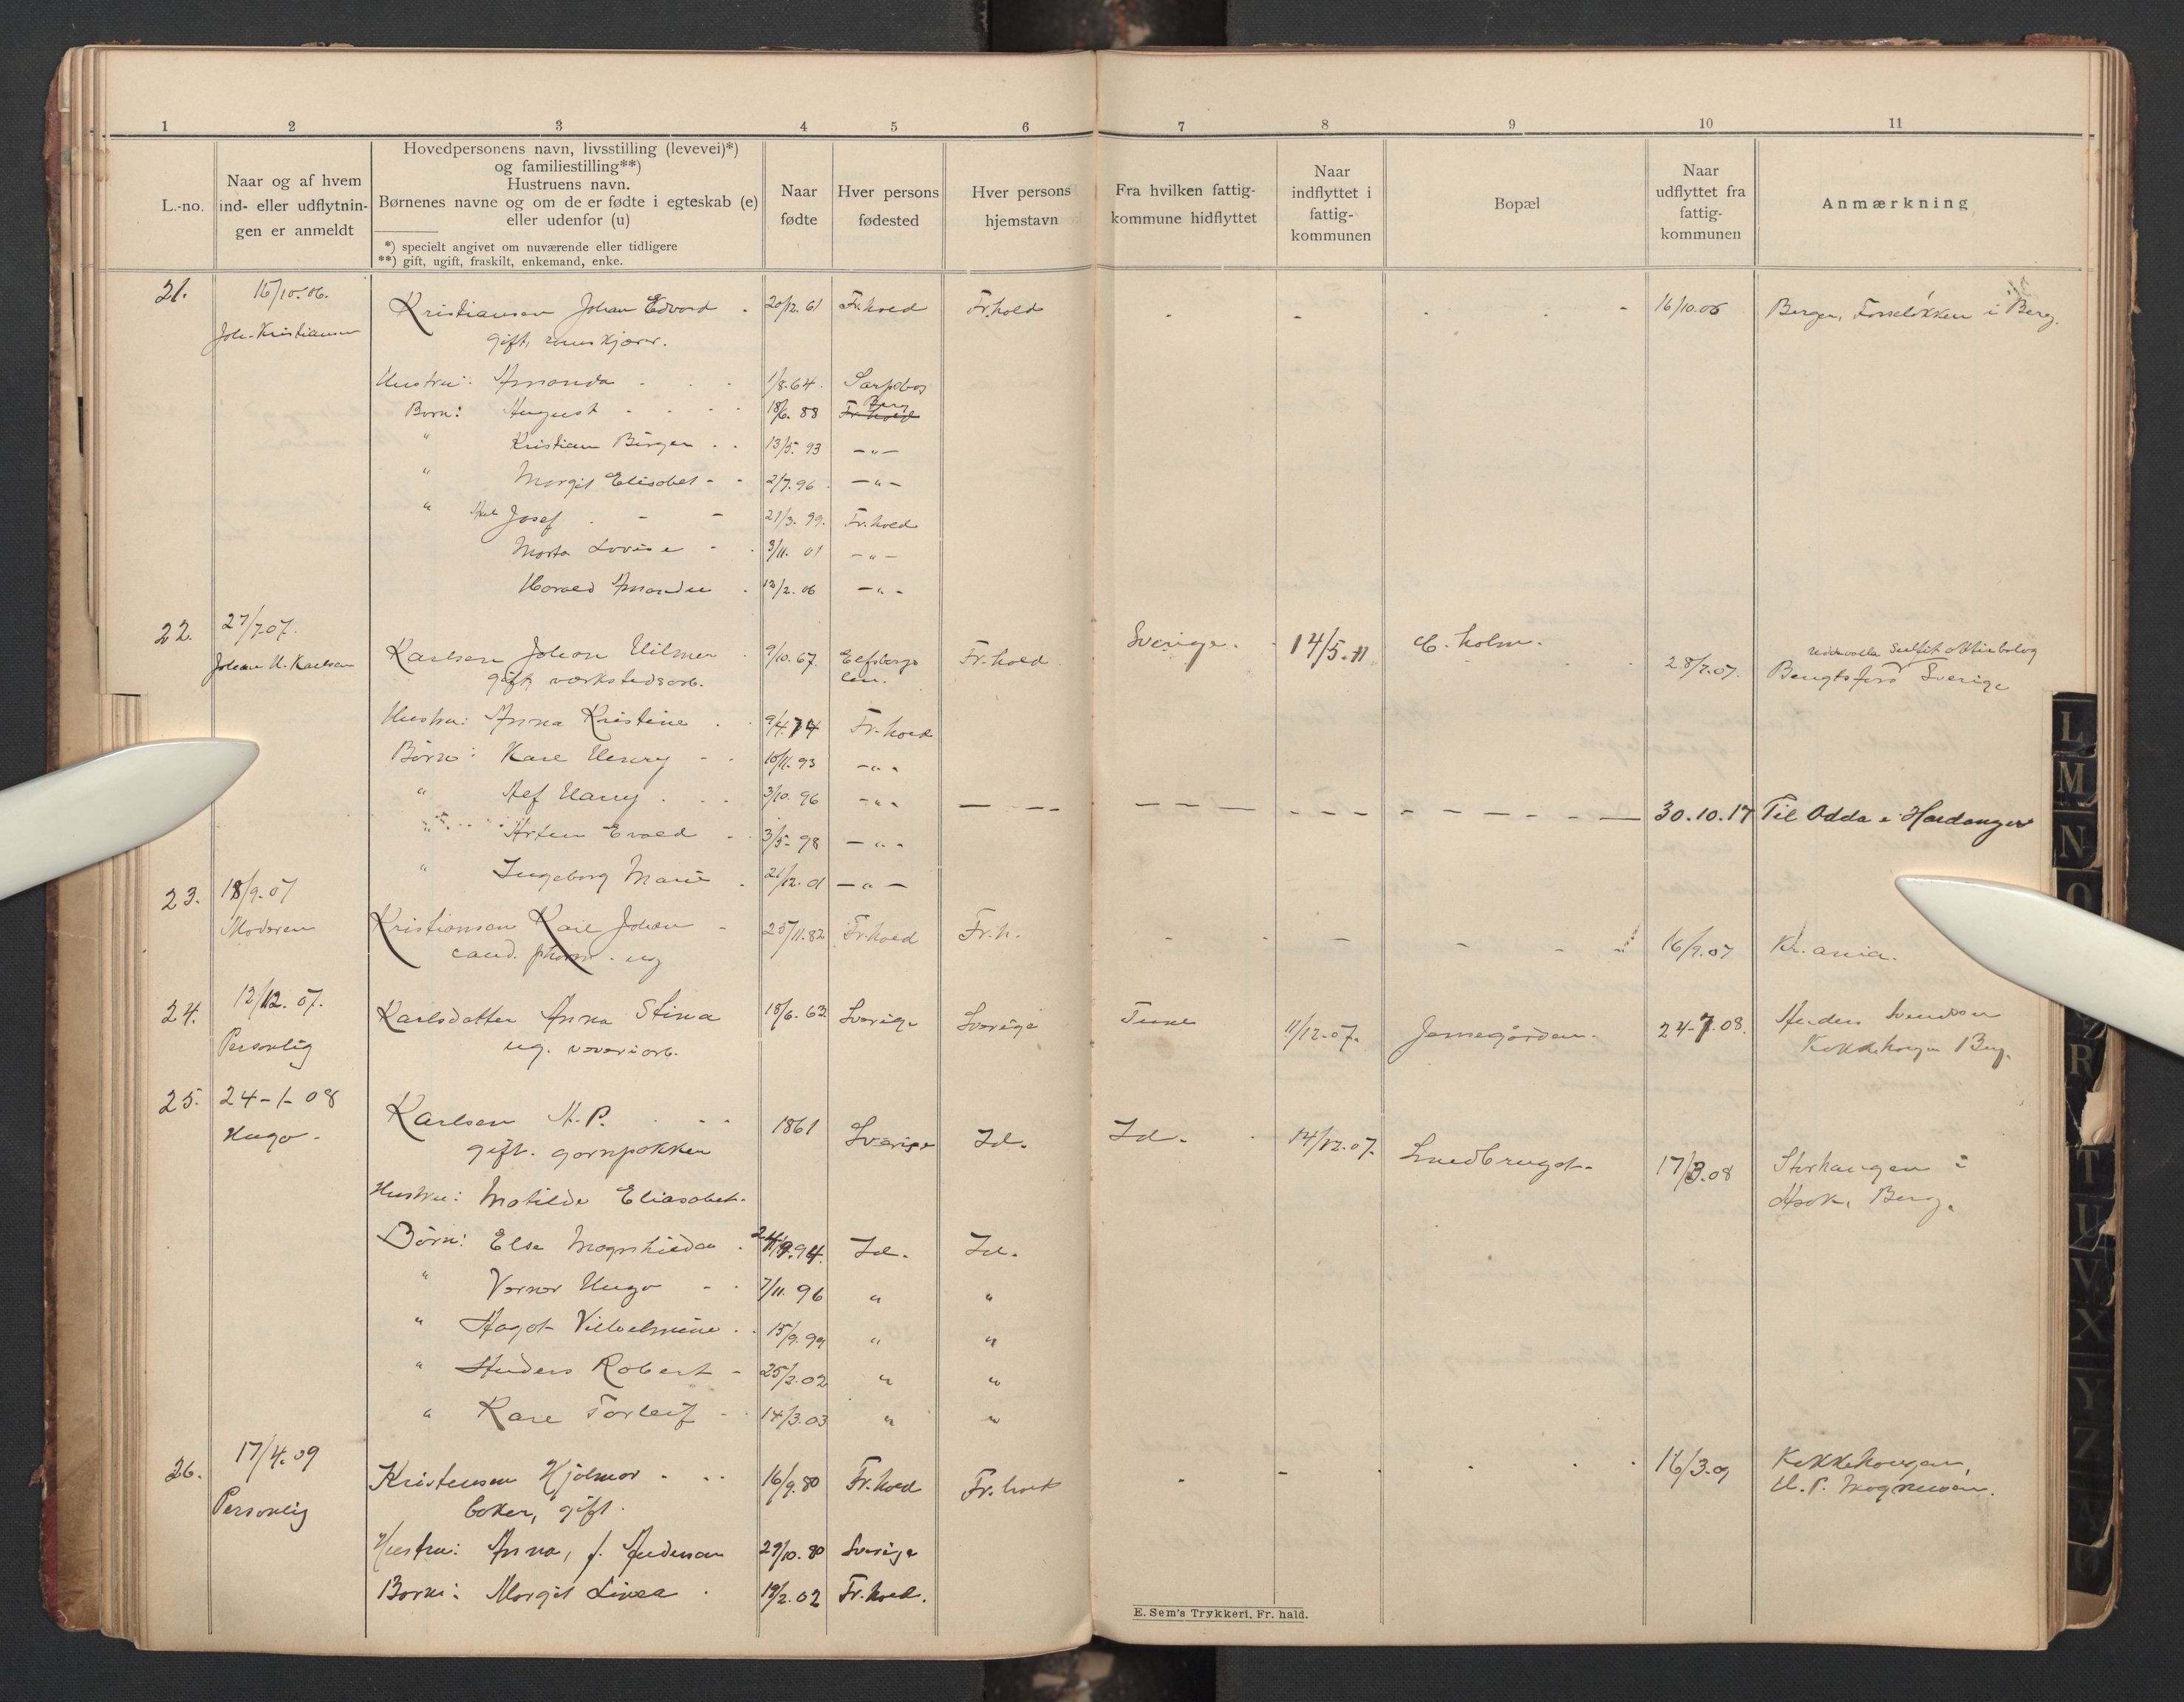 1 2 3 4 5 6 7 8 9 10 11
L.-no.
Naar og af hvem
ind- eller udflytnin-
gen er anmeldt
Hovedpersonens navn, livsstilling (levevei)*)
og familiestilling**)
Hustruens navn.
Børnenes navne og om de er fødte i egteskab (e)
eller udenfor (u)
*) specielt angivet om nuværende eller tidligere
**) gift, ugift, fraskilt, enkemand, enke.
Naar
fødte
Hver persons
fødested
Hver persons
hjemstavn
Fra hvilken fattig-
kommune hidflyttet
Naar
indflyttet i
fattig-
kommunen
Bopæl
Naar
udflyttet fra
fattig-
kommunen
Anmærkning
21. 15/10.06. Kristiansen Johan Edvard 20/12.61 Fr.hald Fr.hald - - 16/10.06 i Berg.
Joh. Kristiansen gift,
Hustru: Amanda 1/8.64. Sarpsborg
Børn: August 18/6.88 Berg Fr.hald
" Kristian Birger 13/5.93 -"-
" Margit Elisabet 2/7.96 -"-
" Josef 21/3.99. Fr.hald
Marta Lovise 3/11.01 -"-
Harald 13/2.06 -"-
22. 27/7.07. Karlsen Johan Hilmer 9/10.67. Elfsborgs Fr.hald Sverige. 14/5.11 C. holm. 28/7.07. Bengtsfors Sverige
Johan H. Karlsen gift, værkstedsarb. len.
Hustru: Anna Kristine 9/4.74 Fr.hald
Børn: Karl Henry 10/11.93 -"-
" Alf Harry 3/10.96 -"- 30.10.17 Til Odda i Hardanger
Evald 3/5.98 -"-
" Ingeborg Marie 21/12.01 -"-
23. 18/9.07 Kristiansen Karl Johan 25/11.82 Fr.hald Fr.h. - - 16/9.07 Kr.ania.
Moderen cand. pharm. ug
24. 12/12.07. Karlsdatter Anna Stina 18/6.62 Sverige Sverige Tune 11/12.07. Jernegården. 24-7.08. Anders Svendsen
Personlig ug. væveriarb. Berg.
25. 24-1-08 Karlsen A. P. 1861 Sverige Id. Id. 14/12.07. 17/3.08 Storhaugen i
Hugo. gift. garnpakker Asak, Berg.
Hustru: Matilde Eliasabet.
Børn: Else Magnhilda 24/9.94. Id. Id.
" Verner Hugo 7/11.96 " "
" Vilhelmine 15/9.99 " "
" Anders Robert 25/2.02 " "
" Kare Torleif 14/3.03 " "
26. 17/4.09 Kristensen Hjalmar 16/9.80 Fr.hald Fr.hald - - 16/3.09
Personlig baker, gift. H. P. Magnussen.
Hustru: Anna, f. Andersen 29/10.80 Sverige
Børn: Margit Linea 19/2.02 Fr.hald.
E. Sem's Trykkeri. Fr. hald.
L
M
N
O
R
T
U
V
X
Y
Z